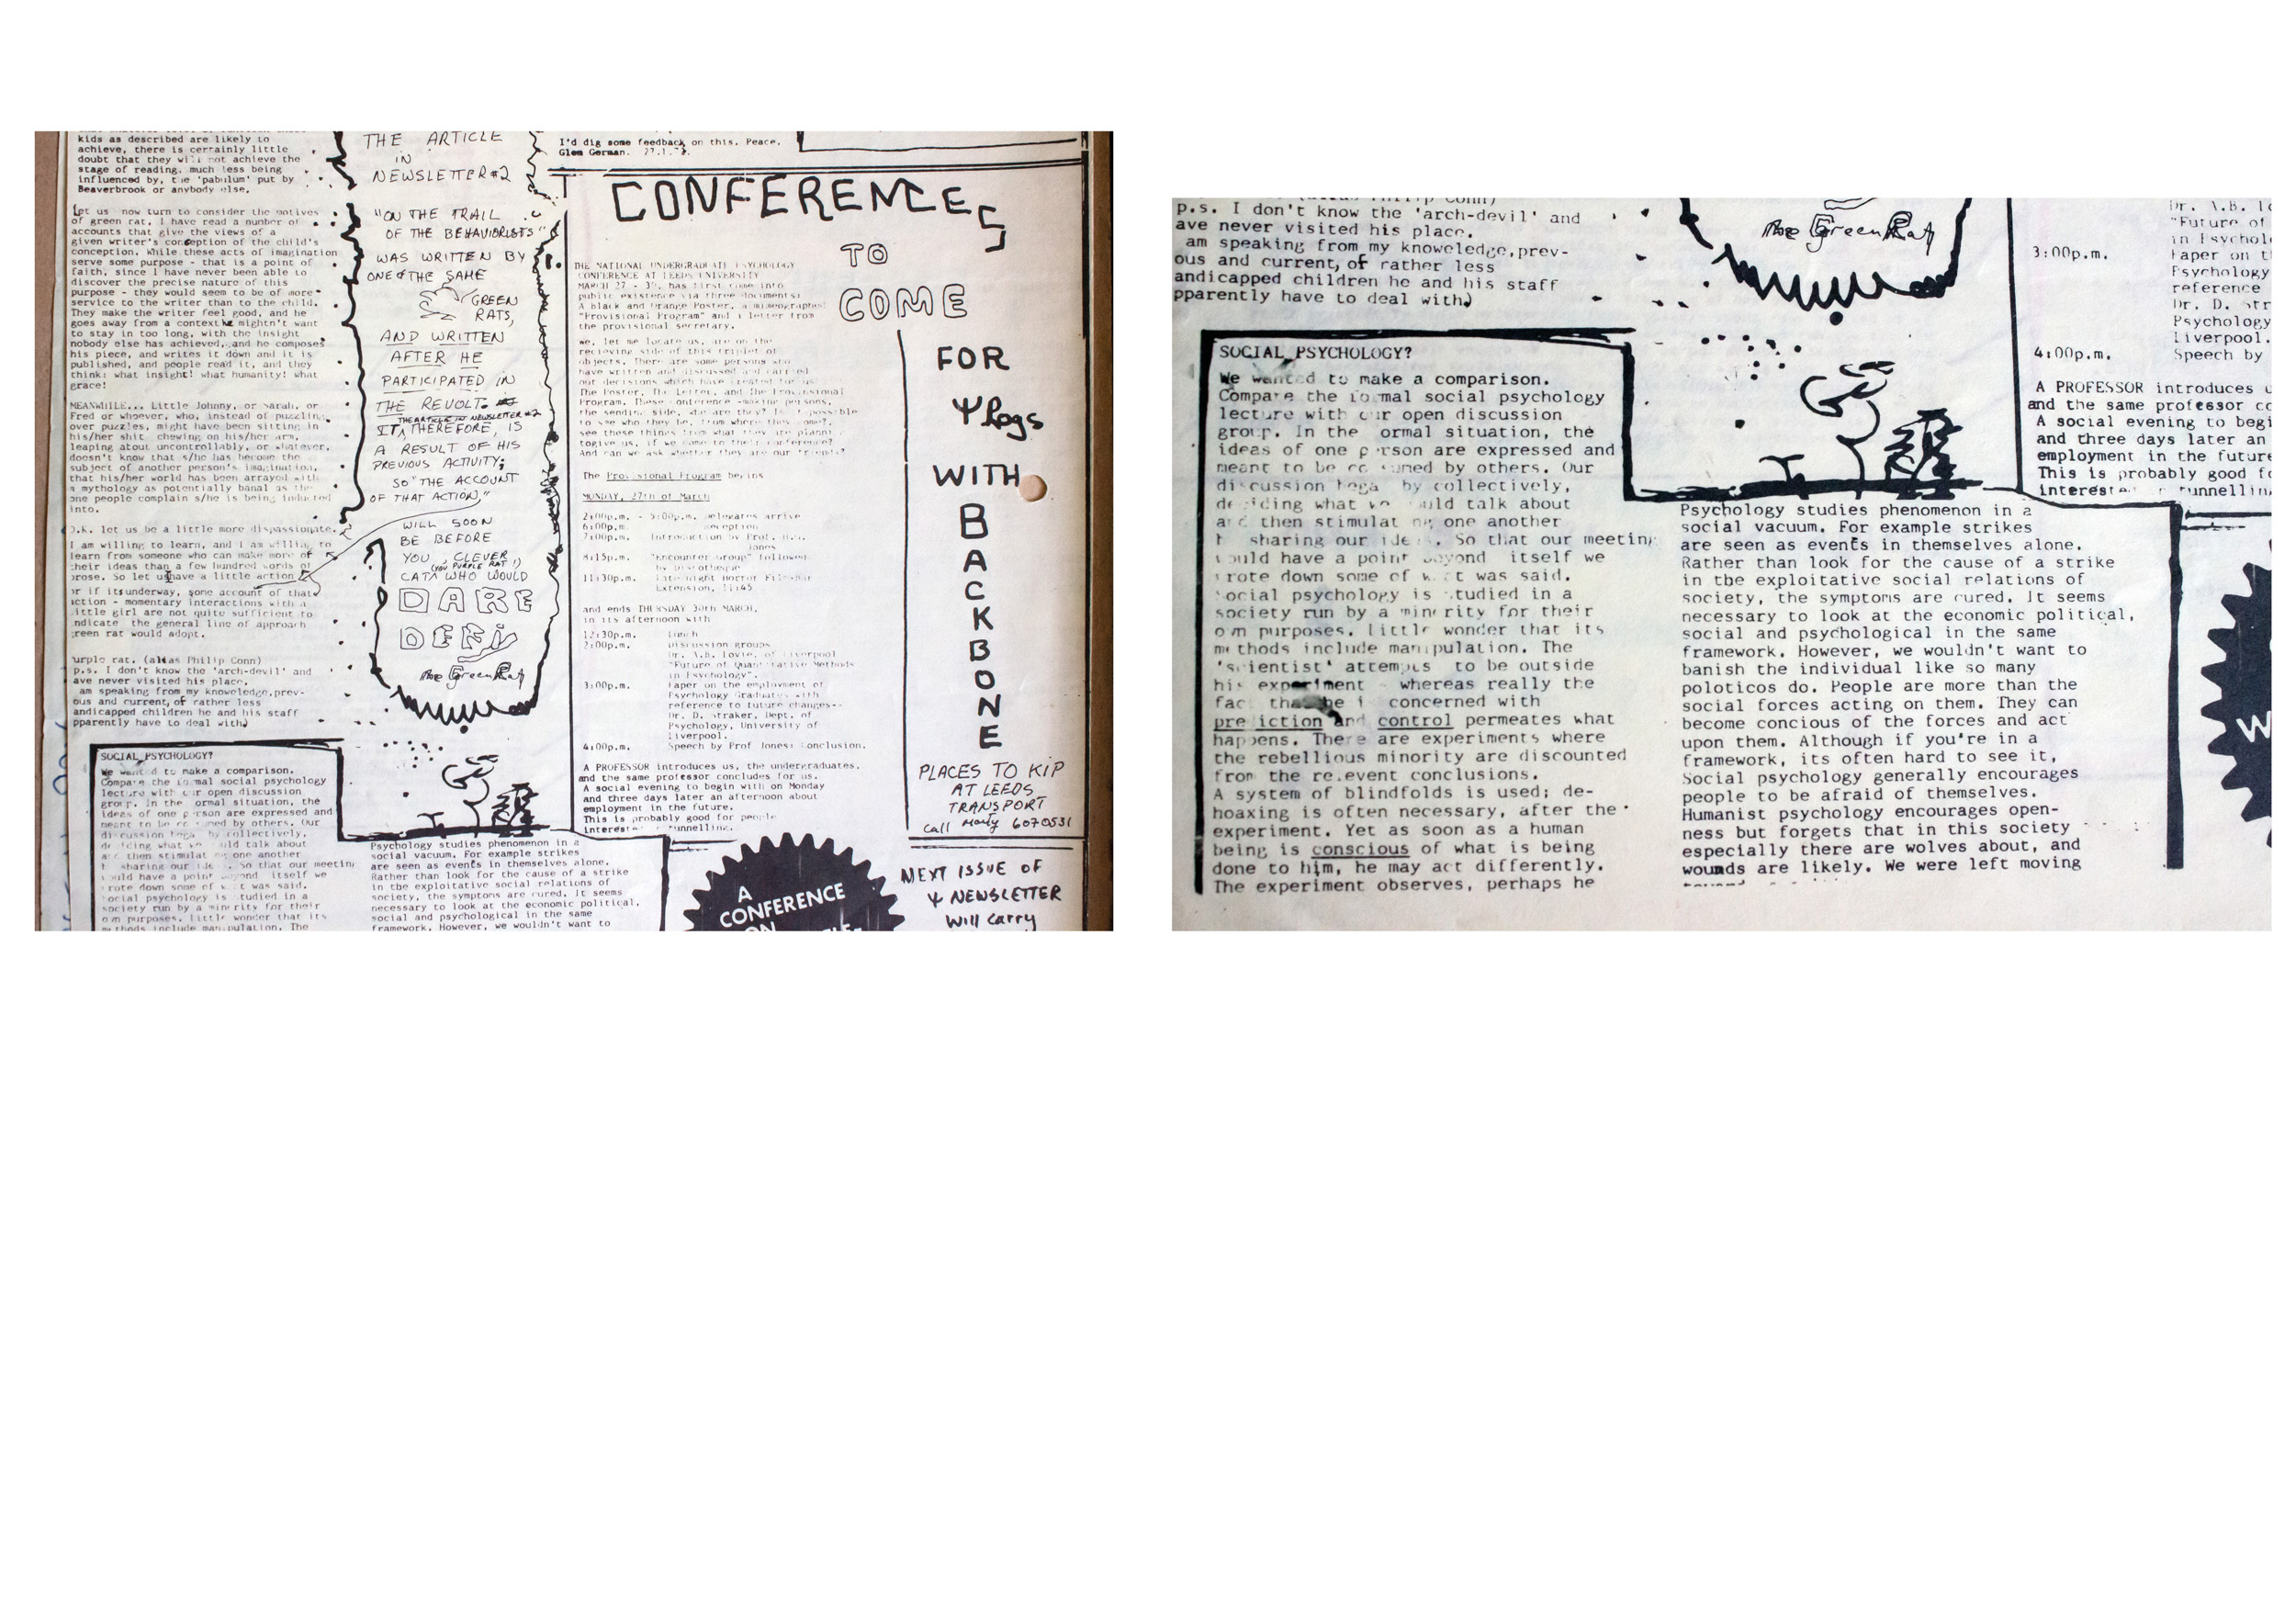 kids as described are likely to
achieve, there is certainly little
doubt that they will not achieve the
stage of reading, much less being
influenced by, the 'pabulum' put by
Beaverbrook or anybody else.
Let us now turn to consider the motives
of green rat. I have read a number of
accounts that give the views of a
given writer's conception of the child's
conception. While these acts of imagination
serve some purpose - that is a point of
faith, since I have never been able to
discover the precise nature of this
purpose - they would seem to be of more
service to the writer than to the child.
They make the writer feel good, and he
goes away from a context he mightn't want
to stay in too long, with the insight
nobody else has achieved, and he composes
his piece, and writes it down and it is
published, and people read it, and they
think: what insight! what humanity! what
grace!
MEANWHILE... Little Johnny, or Sarah, or
Fred or whoever, who, instead of puzzling
over puzzles, might have been sitting in
his/her shit chewing on his/her arm,
leaping about uncontrollably, or whatever,
doesn't know that s/he has become the
subject of another person's imagination,
that his/her world has been arrayed with
a mythology as potentially banal as the
one people complain s/he is being inducted
into.
O.k. let us be a little more dispassionate.
I am willing to learn, and I am willing to
learn from someone who can make more of
their ideas than a few hundred words of
prose. So let us have a little action
or if its underway, some account of that
action - momentary interactions with a
little girl are not quite sufficient to
indicate the general line of approach
green rat would adopt.
urple rat. (alias Philip Conn)
p.s. I don't know the 'arch-devil' and
ave never visited his place.
am speaking from my knoweledge,prev-
ous and current, of rather less
andicapped children he and his staff
pparently have to deal with)
THE ARTICLE
IN
NEWSLETTER #2
"ON THE TRAIL
OF THE BEHAVIORISTS"
WAS WRITTEN BY
ONE & THE SAME
GREEN
RATS,
AND WRITTEN
AFTER HE
PARTICIPATED IN
THE REVOLT.
THE ARTICLE IN NEWSLETTER #2
IT, THEREFORE, IS
A RESULT OF HIS
PREVIOUS ACTIVITY;
SO "THE ACCOUNT
OF THAT ACTION,"
WILL SOON
BE BEFORE
YOU, CLEVER
(YOU PURPLE RAT!)
CAT, WHO WOULD
DARE
DENY
The Green Rat
I'd dig some feedback on this. Peace.
Glen German.
CONFERENCES
TO
COME
FOR
Ψ
WITH
BACKBONE
PLACES TO KIP
AT LEEDS
TRANSPORT
call Marty 6070531
THE NATIONAL UNDERGRADUATE PSYCHOLOGY
CONFERENCE AT LEEDS UNIVERSITY
MARCH 27 - 30, has first come into
public existence via three documents:
A black and Orange Poster, a mimeographed
"Provisional Program" and a letter from
the provisional secretary.
We, let me locate us, are on the
recieving side of this triplet of
objects. There are some persons who
have written and discussed and carried
out decisions which have created for us
The Poster, The Letter, and The Provisional
Program. These conference -making persons,
the sending side, who are they? Is it possible
to see who they be, from where they come?,
see these things from what they are planning
togive us, if we come to their conference?
And can we ask whether they are our 'friends'?
The Provisional Program begins
MONDAY, 27th of March
2:00p.m. - 5:00p.m. Delegates arrive
6:00p.m. Reception
7:00p.m. Introduction by Prof.
Jones
8:15p.m. "Encounter Group" followed
by Discotheque
11:30p.m. Late night Horror Film-Bar
Extension, 11:45
and ends THURSDAY 30th MARCH,
in its afternoon with
12:30p.m. Lunch
2:00p.m. Discussion groups
Dr. A.B. Lovie, of Liverpool
"Future of Quantitative Methods
in Psychology".
3:00p.m. Paper on the employment of
Psychology Graduates with
reference to future changes--
Dr. D. Straker, Dept. of
Psychology, University of
Liverpool.
4:00p.m. Speech by Prof Jones: Conclusion.
A PROFESSOR introduces us, the undergraduates,
and the same professor concludes for us.
A social evening to begin with on Monday
and three days later an afternoon about
employment in the future.
This is probably good for people
interested tunnelling.
SOCIAL PSYCHOLOGY?
We wanted to make a comparison.
Compare the formal social psychology
lecture with our open discussion
group. In the ormal situation, the
ideas of one person are expressed and
meant to be consumed by others. Our
discussion began by collectively,
deciding what we would talk about
and then stimulating one another
sharing our ideas. So that our meeting
would have a point beyond itself we
wrote down some of what was said.
Psychology studies phenomenon in a
social vacuum. For example strikes
are seen as events in themselves alone.
Rather than look for the cause of a strike
in the exploitative social relations of
society, the symptoms are cured. It seems
necessary to look at the economic political,
social and psychological in the same
framework. However, we wouldn't want to
A
CONFERENCE
ON
NEXT ISSUE OF
Ψ NEWSLETTER
Will carry
p.s. I don't know the 'arch-devil' and
ave never visited his place.
am speaking from my knoweledge,prev-
ous and current, of rather less
andicapped children he and his staff
pparently have to deal with)
The Green Rat
SOCIAL PSYCHOLOGY?
We wanted to make a comparison.
Compare the formal social psychology
lecture with our open discussion
group. In the ormal situation, the
ideas of one person are expressed and
meant to be consumed by others. Our
discussion began by collectively,
deciding what we would talk about
and then stimulating one another
sharing our ideas. So that our meeting
would have a point beyond itself we
wrote down some of what was said.
Social psychology is studied in a
society run by a minority for their
own purposes. Little wonder that its
methods include manipulation. The
'scientist' attempts to be outside
his experiment whereas really the
fact that he is concerned with
prediction and control permeates what
happens. There are experiments where
the rebellious minority are discounted
from the relevent conclusions.
A system of blindfolds is used; de-
hoaxing is often necessary, after the
experiment. Yet as soon as a human
being is conscious of what is being
done to him, he may act differently.
The experiment observes, perhaps he
Psychology studies phenomenon in a
social vacuum. For example strikes
are seen as events in themselves alone.
Rather than look for the cause of a strike
in the exploitative social relations of
society, the symptoms are cured. It seems
necessary to look at the economic political,
social and psychological in the same
framework. However, we wouldn't want to
banish the individual like so many
poloticos do. People are more than the
social forces acting on them. They can
become concious of the forces and act
upon them. Although if you're in a
framework, its often hard to see it,
Social psychology generally encourages
people to be afraid of themselves.
Humanist psychology encourages open-
ness but forgets that in this society
especially there are wolves about, and
wounds are likely. We were left moving
"Future of
in Psychol
3:00p.m. Paper on t
Psychology
reference
Dr. D. Str
Psychology
Liverpool.
4:00p.m. Speech by
A PROFESSOR introduces u
and the same professor co
A social evening to begi
and three days later an
employment in the future
This is probably good fo
interested tunnellin
W